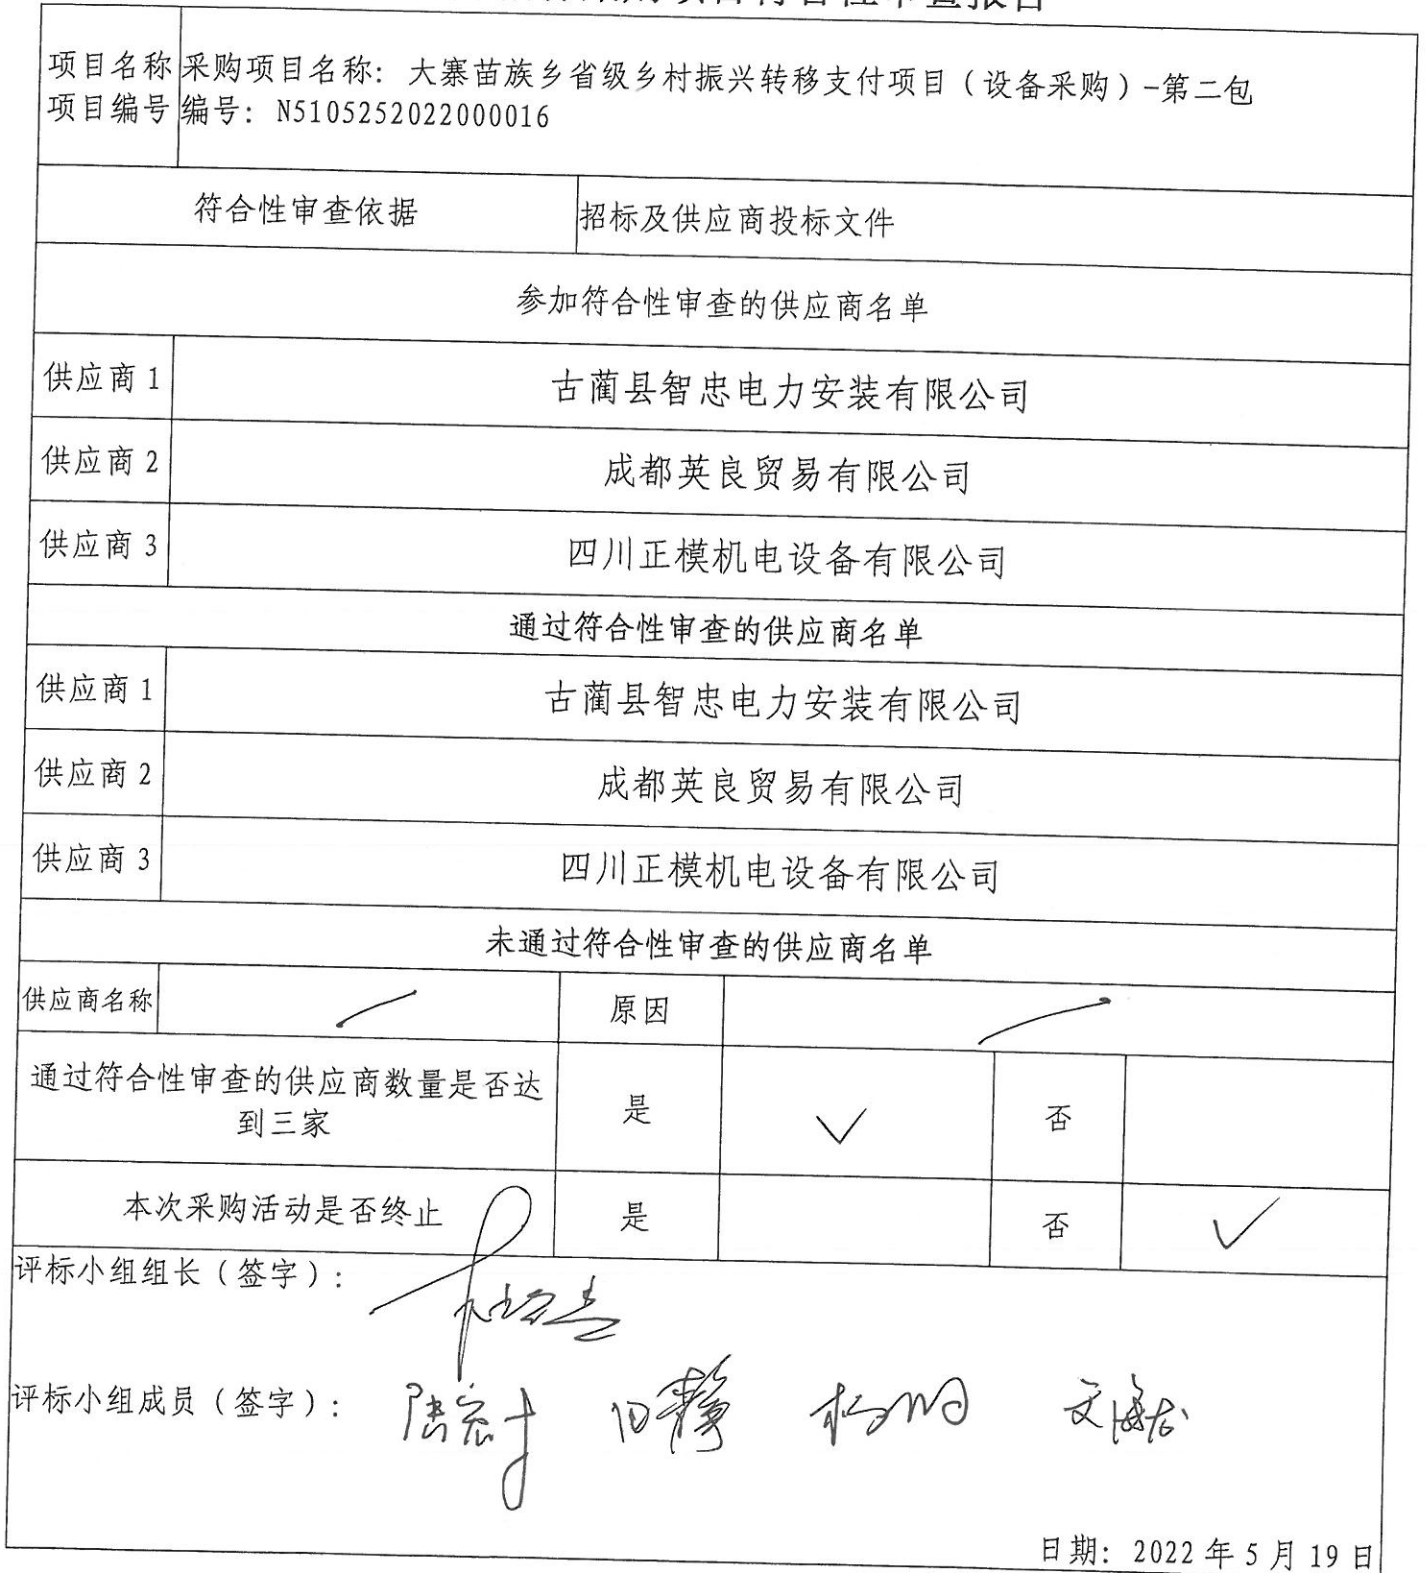 项目符合性审查报告
项目名称 采购项目名称: 大寨苗族乡省级乡村振兴转移支付项目(设备采购)-第二包
项目编号 编号: N5105252022000016
符合性审查依据 招标及供应商投标文件
参加符合性审查的供应商名单
供应商1 古蔺县智忠电力安装有限公司
供应商2 成都英良贸易有限公司
供应商3 四川正模机电设备有限公司
通过符合性审查的供应商名单
供应商1 古蔺县智忠电力安装有限公司
供应商2 成都英良贸易有限公司
供应商3 四川正模机电设备有限公司
未通过符合性审查的供应商名单
供应商名称 原因
通过符合性审查的供应商数量是否达
到三家 是 ✓ 否
本次采购活动是否终止 是 否 ✓
评标小组组长(签字):
评标小组成员(签字):
日期: 2022年5月19日